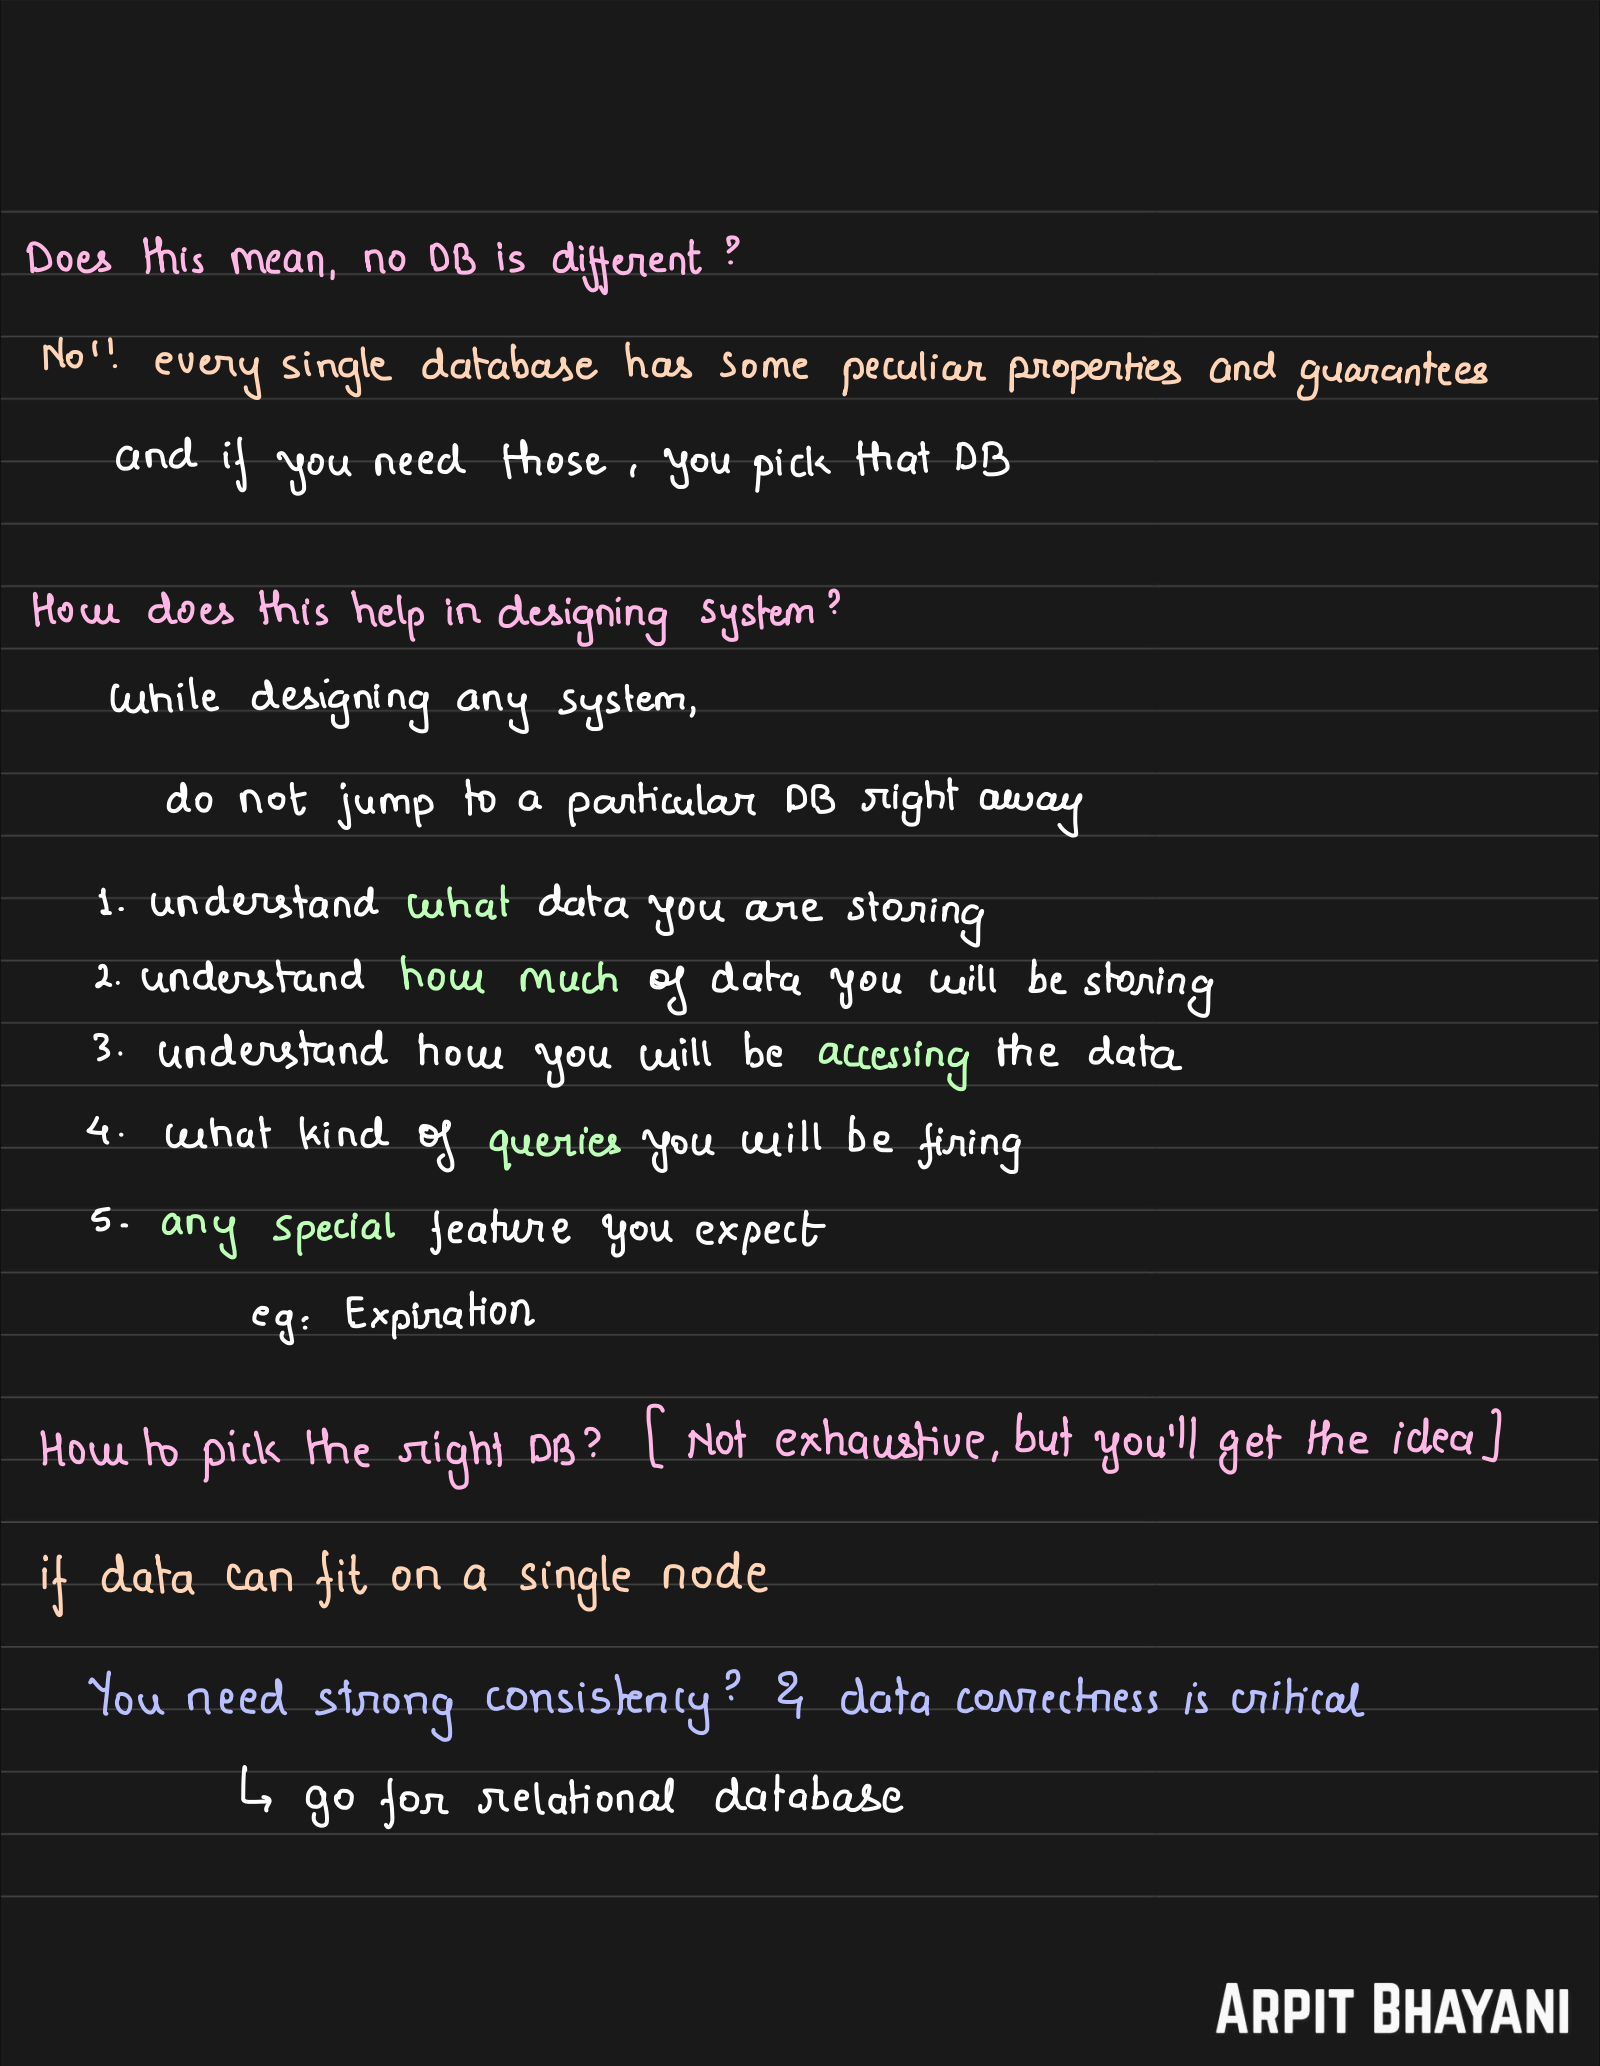 Does this mean, no DB is different ?
No!! every single database has some peculiar properties and guarantees
and if you need those, you pick that DB
How does this help in designing system?
While designing any system,
do not jump to a particular DB right away
1. understand what data you are storing
2. understand how much of data you will be storing
3. understand how you will be accessing the data
4. what kind of queries you will be firing
5. any special feature you expect
eg: Expiration
How to pick the right DB? [Not exhaustive, but you'll get the idea]
if data can fit on a single node
You need strong consistency? & data correctness is critical
↳ go for relational database
ARPIT BHAYANI